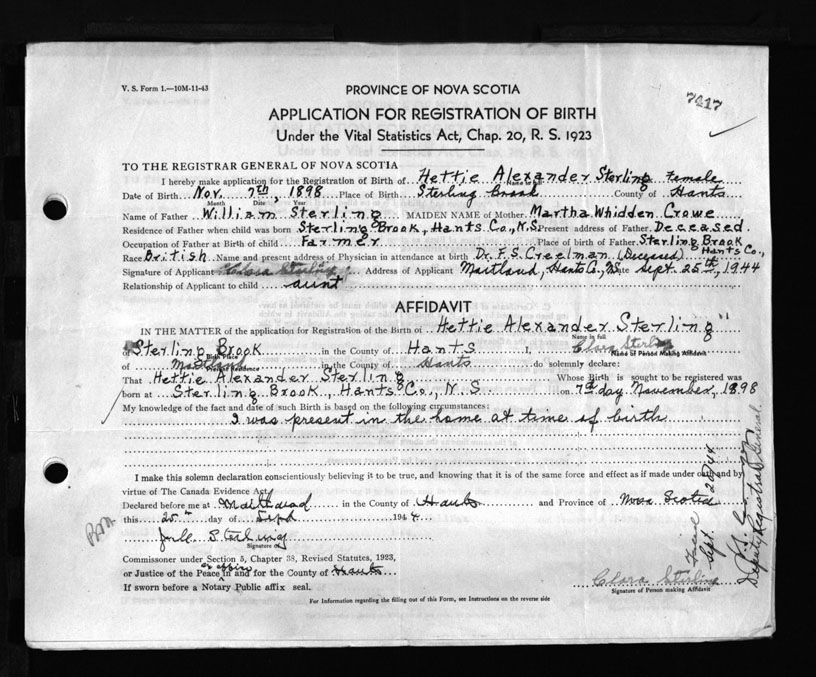 V. S. Form 1.—10M-11-43
PROVINCE OF NOVA SCOTIA
7417
APPLICATION FOR REGISTRATION OF BIRTH
Under the Vital Statistics Act, Chap. 20, R. S. 1923
TO THE REGISTRAR GENERAL OF NOVA SCOTIA
I hereby make application for the Registration of Birth of Hettie Alexander Sterling Female
Name in full
Date of Birth Nov. 7th, 1898 Place of Birth Sterling Brook County of Hants
Month Date Year
Name of Father William Sterling MAIDEN NAME of Mother Martha Whidden Crowe
Residence of Father when child was born Sterling Brook, Hants Co., N.S. Present address of Father Deceased.
Occupation of Father at Birth of child Farmer Place of birth of Father Sterling Brook
Hants Co.,
Race British Name and present address of Physician in attendance at birth Dr. F. S. Creelman (Deceased)
Signature of Applicant Clara Sterling Address of Applicant Maitland, Hants Co., N.S. Date Sept. 25th, 1944
Relationship of Applicant to child aunt
AFFIDAVIT
IN THE MATTER of the application for Registration of the Birth of Hettie Alexander Sterling"
Name in full
of Sterling Brook in the County of Hants I, Clara Sterling
Birth Place Name of Person Making Affidavit
of Maitland in the County of Hants do solemnly declare:
Residence
That Hettie Alexander Sterling Whose Birth is sought to be registered was
born at Sterling Brook, Hants Co., N.S on 7th day November, 1898
My knowledge of the fact and date of such Birth is based on the following circumstances:
I was present in the home at time of birth
I make this solemn declaration conscientiously believing it to be true, and knowing that it is of the same force and effect as if made under oath and by
virtue of The Canada Evidence Act.
Declared before me at Maitland in the County of Hants and Province of Nova Scotia
this 25th day of Sept 1944.
Sterling
Signature of
Commissoner under Section 5, Chapter 38, Revised Statutes, 1923,
ex officio
or Justice of the Peace in and for the County of Hants
If sworn before a Notary Public affix seal.
Clara Sterling
Signature of Person making Affidavit
For Information regarding the filling out of this Form, see Instructions on the reverse side
Sept. 28/44
Deputy Registrar General